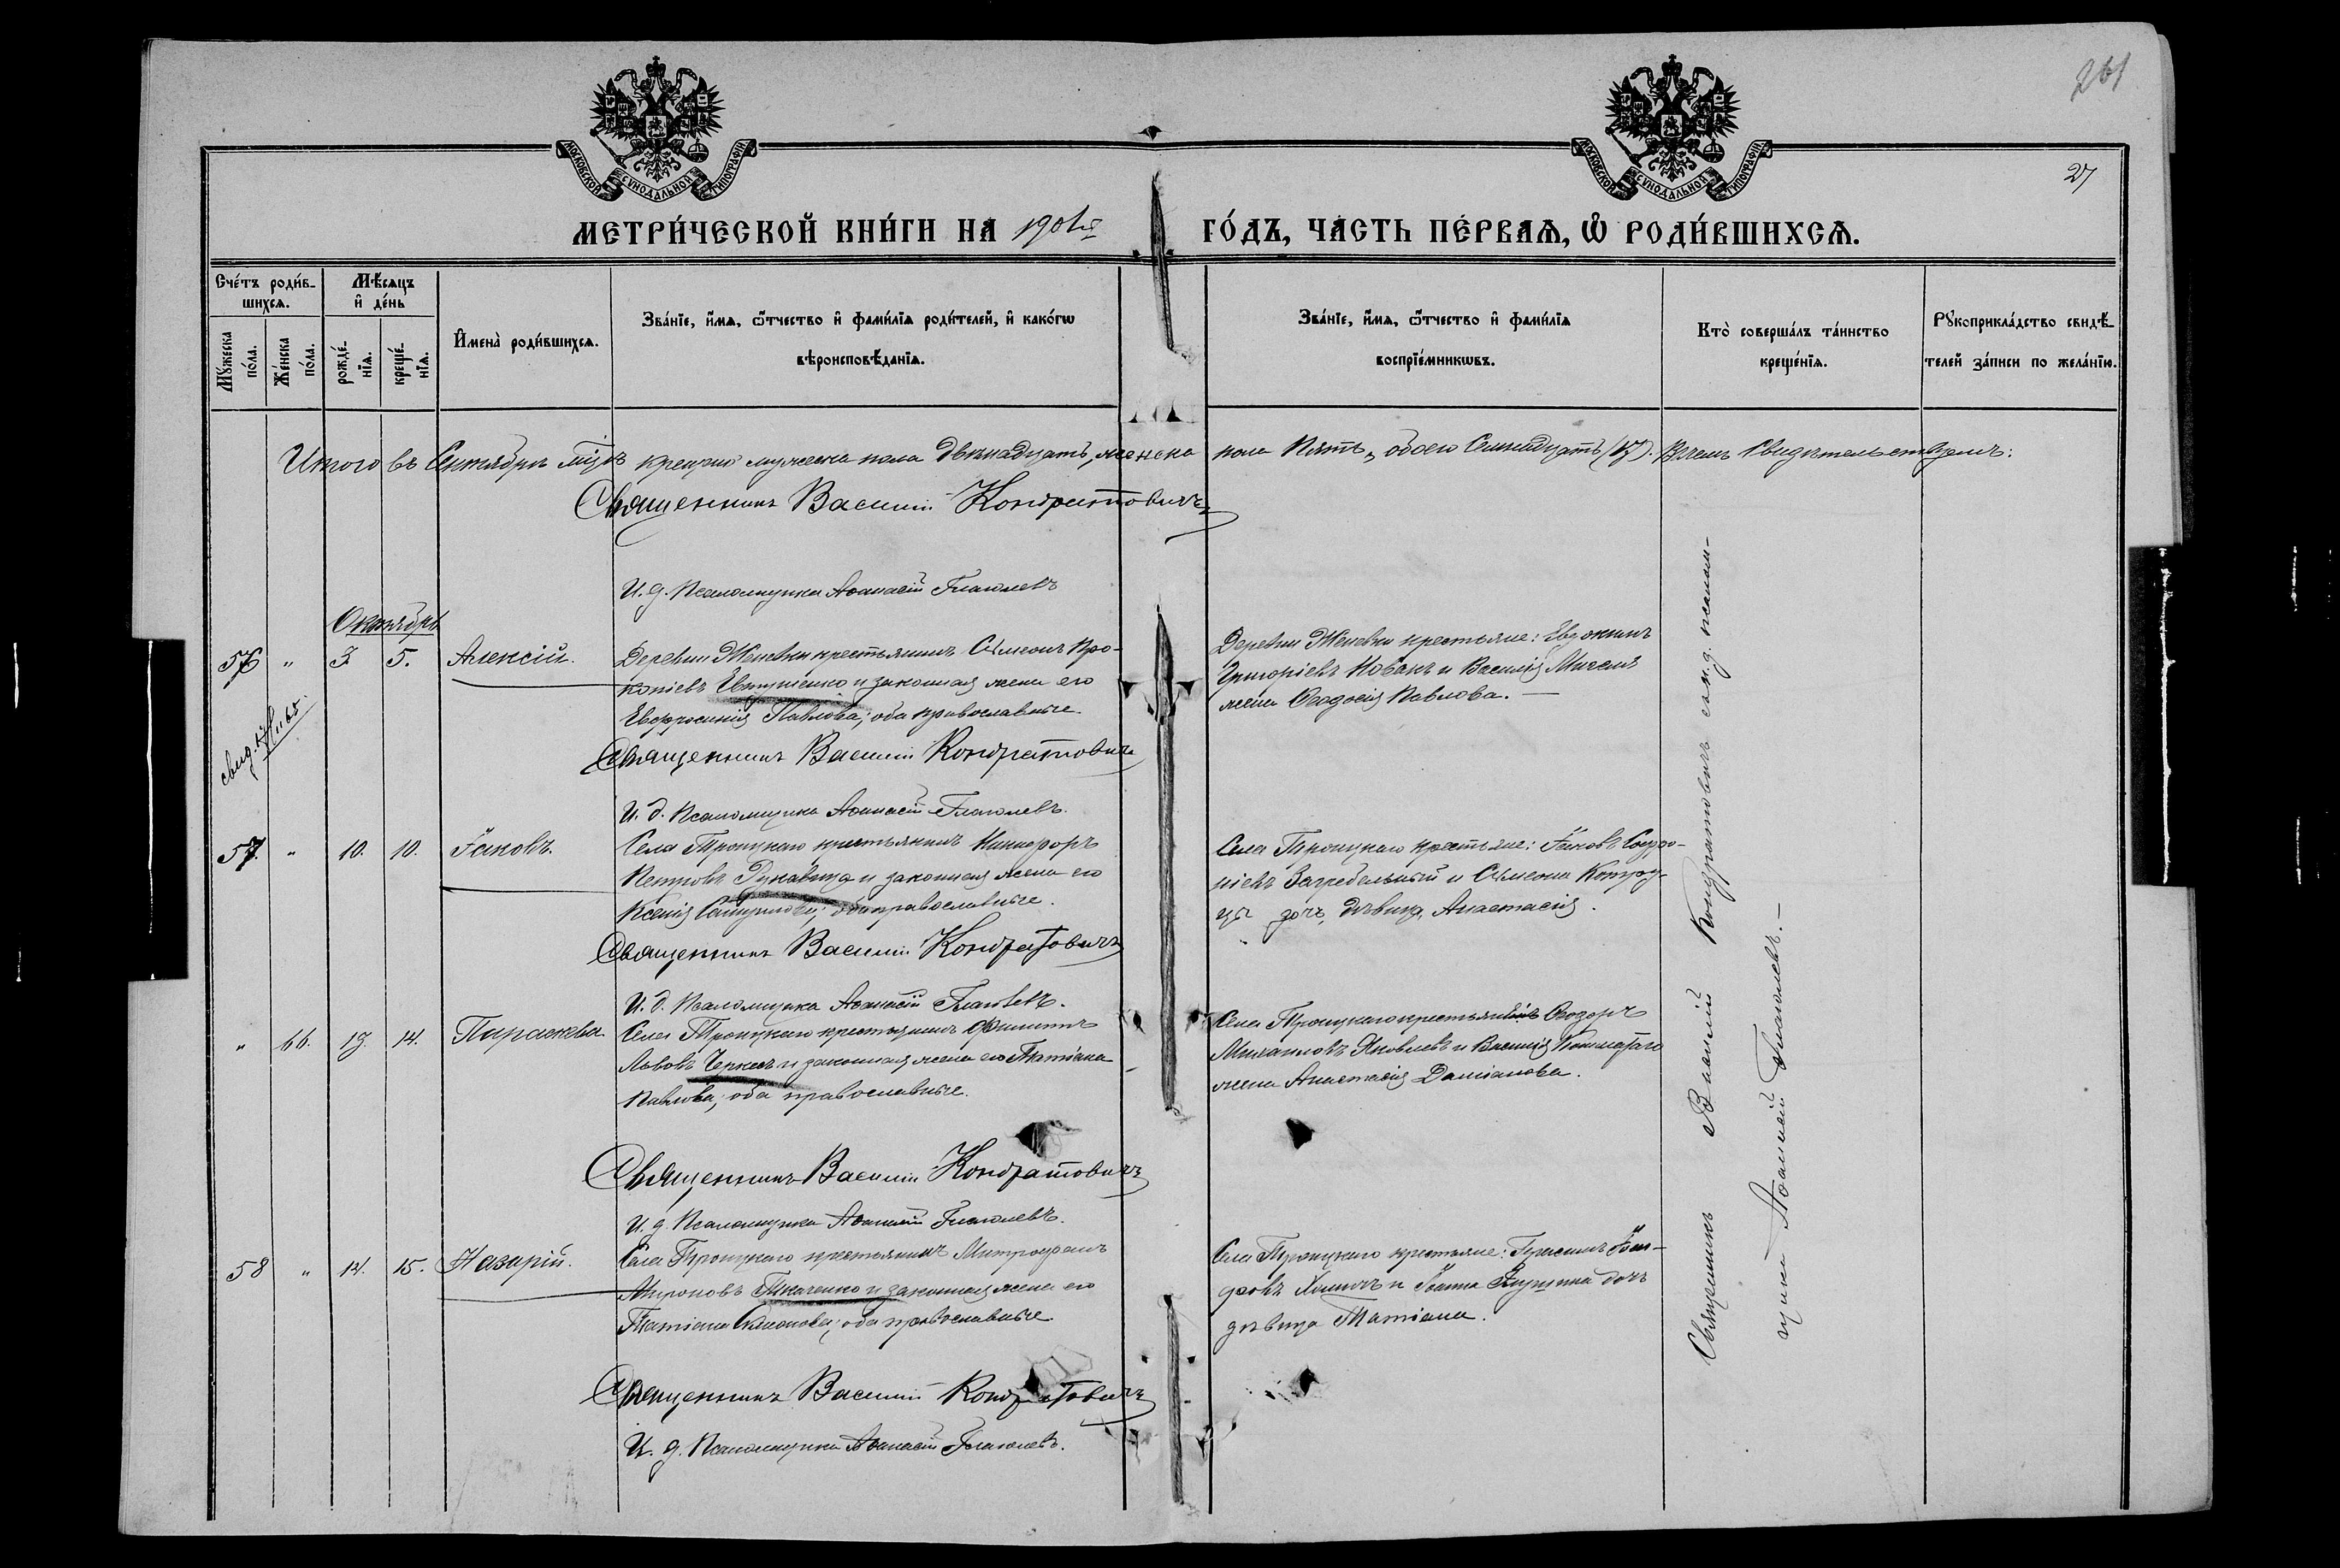 261
27
МОСКОВСКОЙ СѴНОДАЛЬНОЙ ТИПОГРАФІИ
МОСКОВСКОЙ СѴНОДАЛЬНОЙ ТИПОГРАФІИ
МЕТРИ́ЧЕСКОЙ КНИ́ГИ НА 1901й ГО́ДЪ, ЧА́СТЬ ПЕ́РВАѦ, Ѿ РОДИ́ВШИХСѦ.
Сче́тъ роди́в-
шихсѧ.
Мꙋ́жеска
по́ла.
Же́нска
по́ла.
Мѣ́сѧцъ
и҆ де́нь
рожде́-
нїѧ.
креще́-
нїѧ.
И҆мена̀ роди́вшихсѧ.
Зва́нїе, и҆́мѧ, ѻ҆́тчество и҆ фами́лїѧ роди́телей, и҆ како́гѡ
вѣроисповѣ́данїѧ.
Зва́нїе, и҆́мѧ, ѻ҆́тчество и҆ фами́лїѧ
воспрїе́мникѡвъ.
Кто̀ соверша́лъ та́инство
креще́нїѧ.
Рꙋкоприкла́дство свидѣ́-
телей за́писи по жела́нїю.
Итого въ Сентябрѣ м-цѣ крещено мужеска пола двѣнадцать, женска пола пять, обоего семнадцать (17). Въ чемъ свидѣтельствуемъ:
Священникъ Василій Кондратовичъ
И. д. Псаломщика Аѳанасій Глаголевъ
Октябрь
56 " 3. 5. Алексій.
Деревни Женевки крестьянинъ Сѵмеонъ Про-
копіевъ Евтушенко и законная жена его
Евфросинія Павлова; оба православные.
Деревни Женевки крестьяне: Евдокимъ
Григоріевъ Новакъ и Василія
жена Ѳеодосія Павлова. —
свид.
Священникъ Василій Кондратовичъ
И. д. Псаломщика Аѳанасій Глаголевъ.
57. " 10. 10. Іаковъ.
Села Троицкаго крестьянинъ Никифоръ
Петровъ Рукавица и законная жена его
Ксенія оба православные.
Села Троицкаго крестьяне: Іаковъ Софро-
ніевъ Загребельный и Сѵмеона
дочь, дѣвица, Анастасія.
Священникъ Василій Кондратовичъ
И. д. Псаломщика Аѳанасій Глаголевъ.
" 66. 13. 14. Параскева.
Села Троицкаго крестьянинъ Филиппъ
Львовъ Черкесъ и законная жена его Татіана
Павлова; оба православные.
Села Троицкаго крестьянинъ Ѳеодоръ
Михаиловъ Яковлевъ и Василія
жена Анастасія Даміанова.
Священникъ Василій Кондратовичъ
И. д. Псаломщика Аѳанасій Глаголевъ.
58 " 14. 15. Назарій.
Села Троицкаго крестьянинъ Митрофанъ
Мироновъ Ткаченко и законная жена его
Татіана Сѵмеонова; оба православные.
Села Троицкаго крестьяне: Герасимъ
и Іоанна дочь
дѣвица Татіана.
Священникъ Василій Кондратовичъ
И. д. Псаломщика Аѳанасій Глаголевъ.
Священникъ Василій Кондратовичъ с и. д. псалом-
щика Аѳанасій Глаголевъ. —